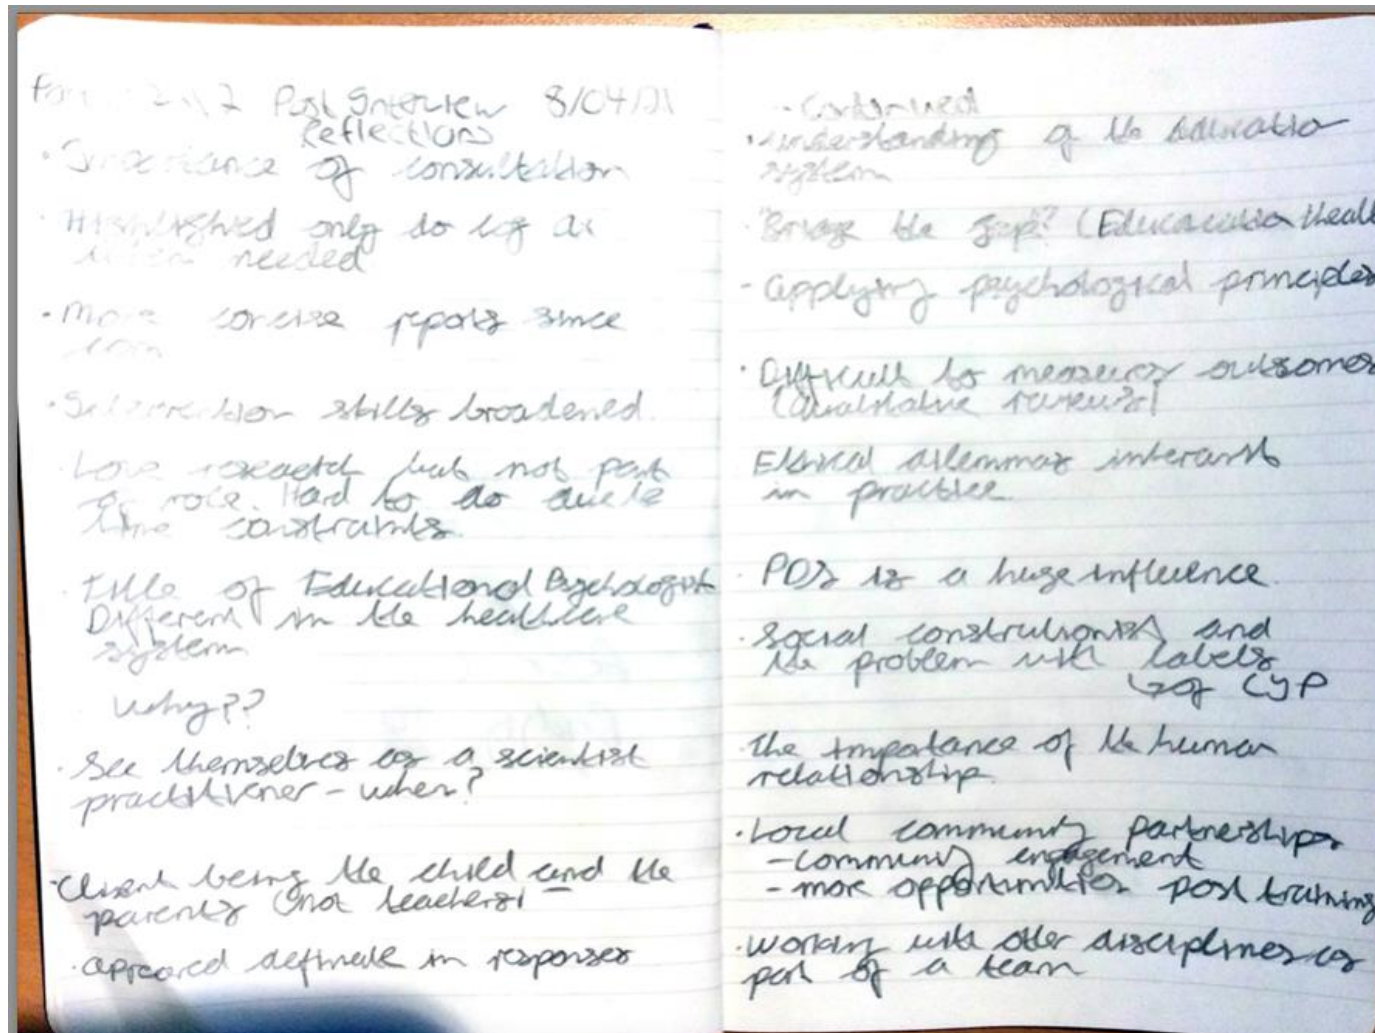 Post Interview 8/04/21
Reflections
• Importance of consultation
• Highlighted only do cog as
when needed
• More concise reports since
• Intervention skills broadened.
• Love research but not part
of role. Hard to do due to
time constraints.
• Title of Educational Psychologist
Different in the healthcare
system
why??
• See themselves as a scientist
practitioner - when?
• Client being the child and the
parents (not teachers)
• appeared definate in responses
- Continued
• understanding of the Education
system
"Bridge the gap" (Education Healt
- applying psychological principles
• Difficult to measure outcomes
(Qualitative reviews)
Ethical dilemmas
in practice
• PDS is a huge influence.
• Social constructionist and
the problem with labels
↳ of CYP
The importance of the human
relationship.
• Local community partnerships
- community engagement
- more opportunities post training
• working with other disciplines as
part of a team